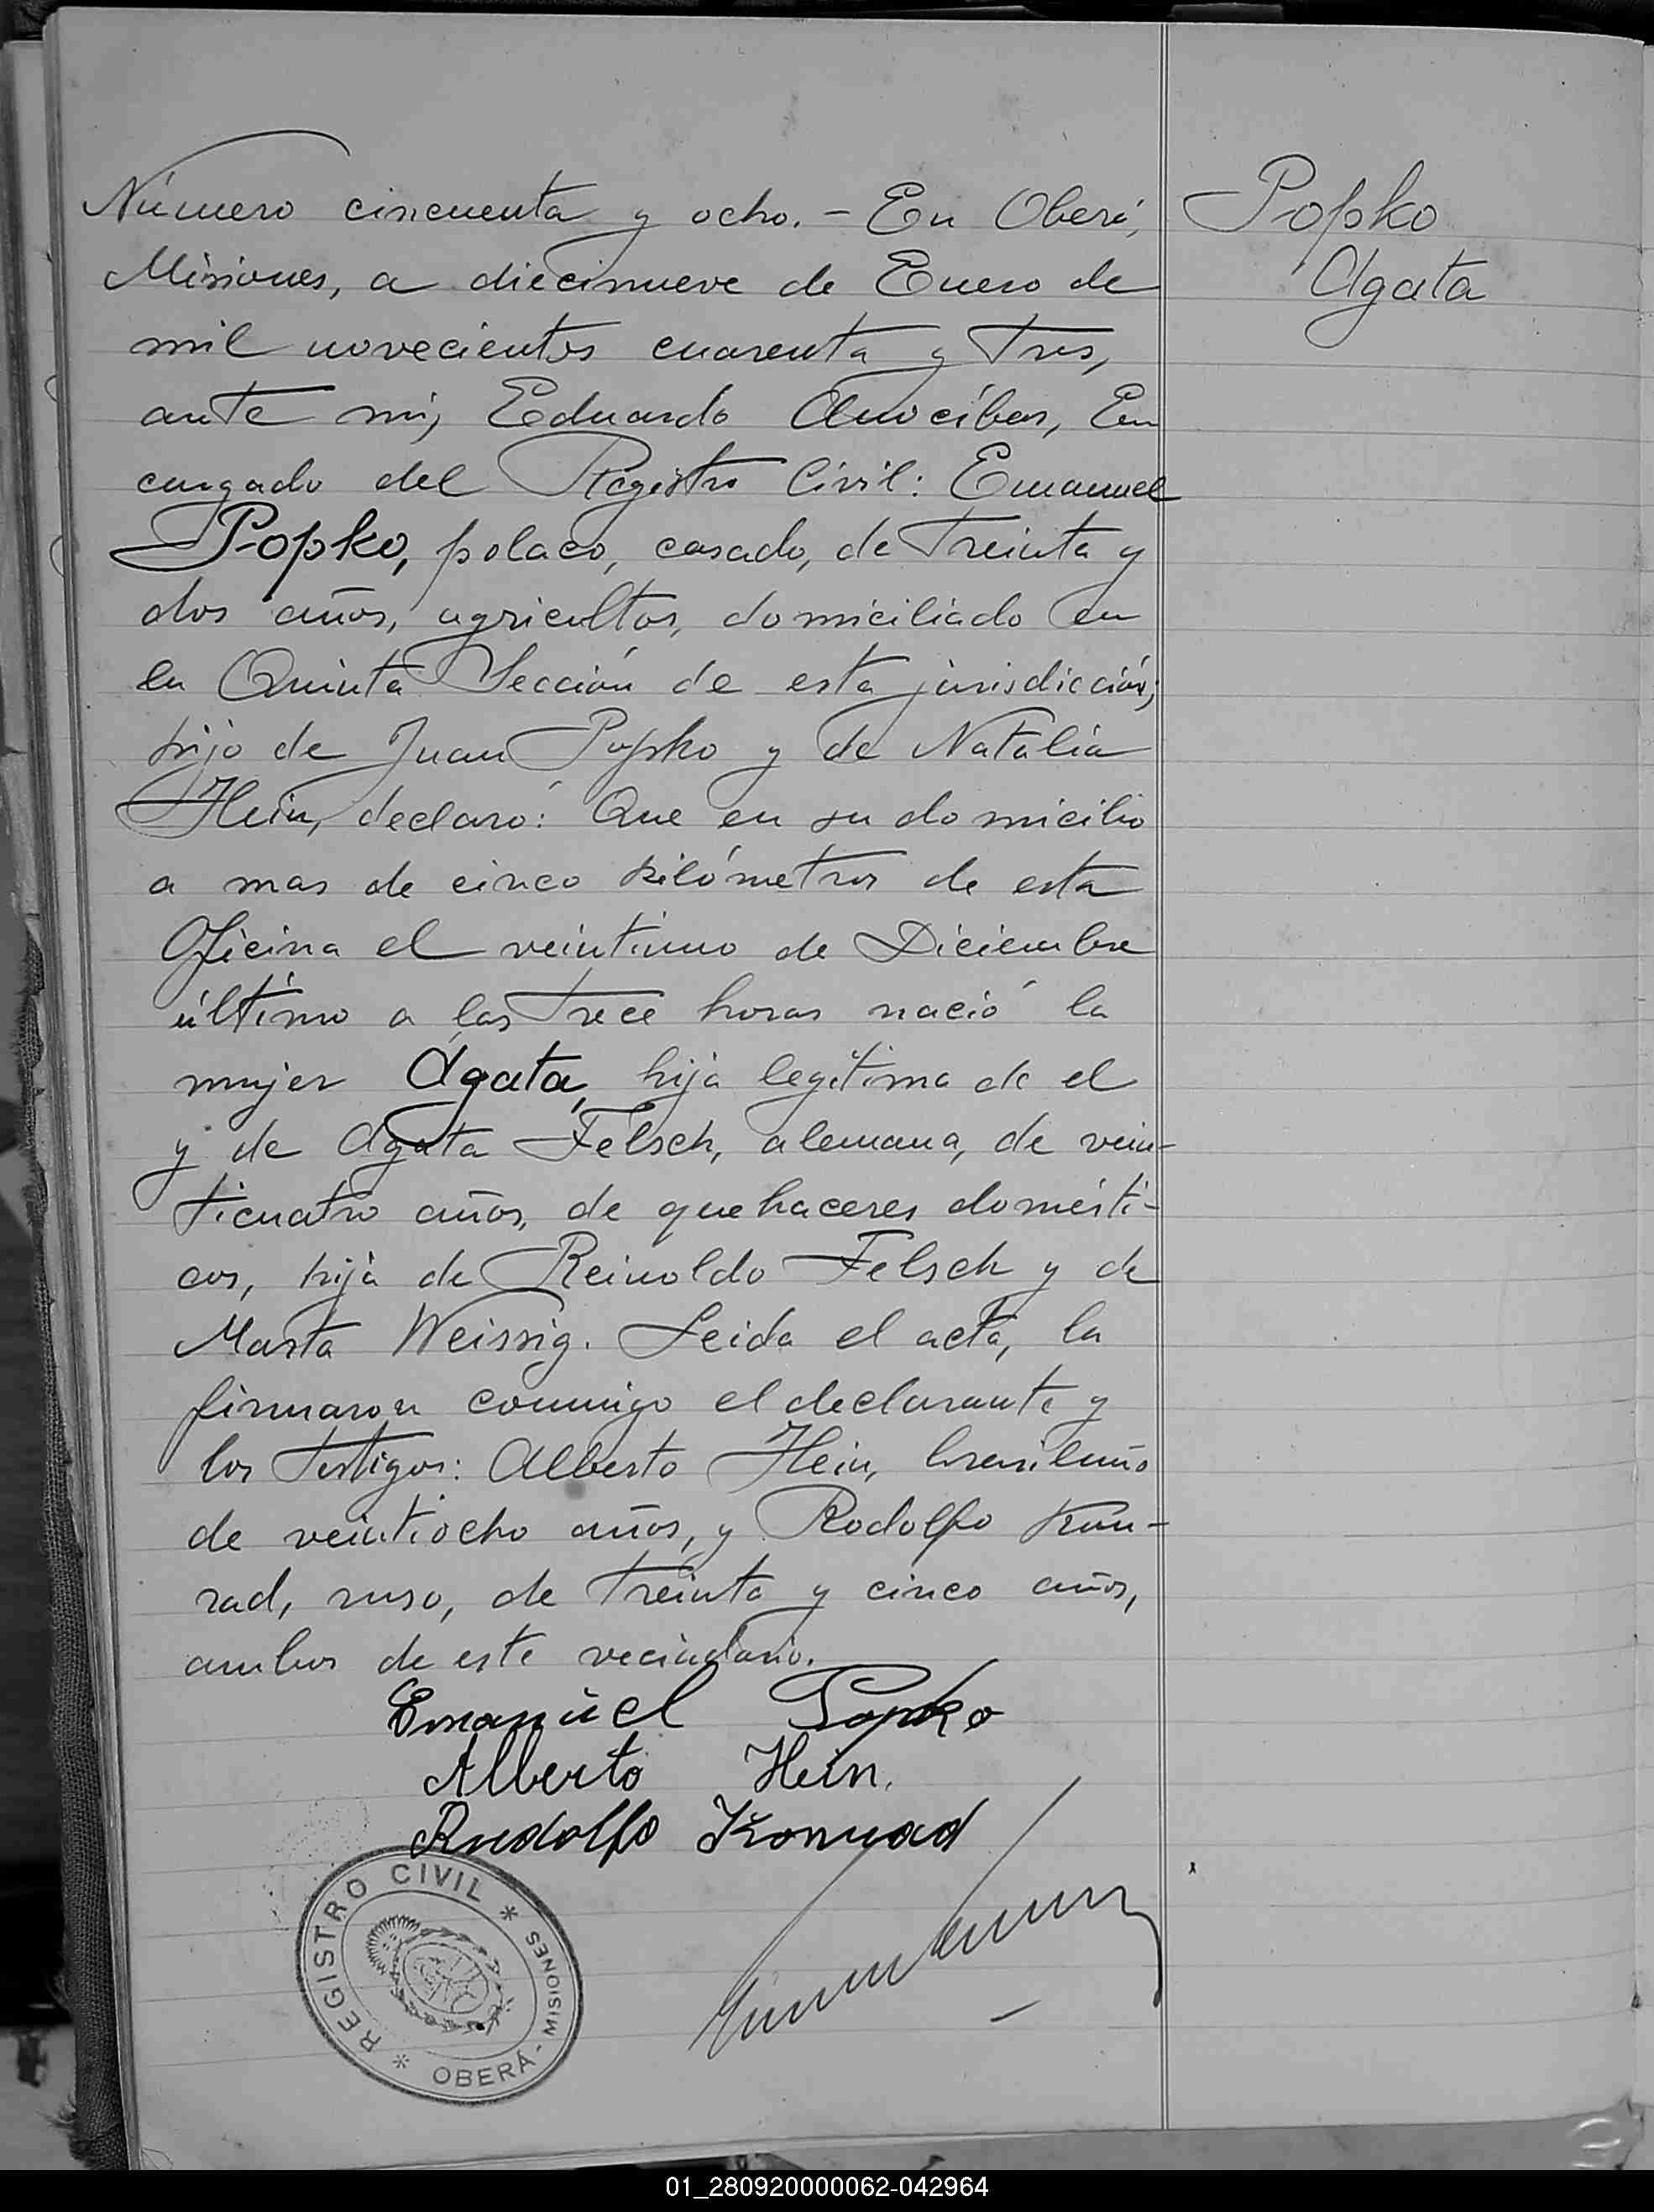 Número cincuenta y ocho. - En Oberá,
Misiones, a diecinueve de Enero de
mil novecientos cuarenta y tres,
ante mi, Eduardo Arocibar, En
cargado del Registro Civil: Emanuel
Popko, polaco, casado, de treinta y
dos años, agricultor, domiciliado en
la Quinta Sección de esta jurisdicción;
hijo de Juan Popko y de Natalia
Hein, declaró: Que en su domicilio
a mas de cinco kilómetros de esta
Oficina el veintiuno de Diciembre
último a las trece horas nació la
mujer Agata, hija legítima de el
y de Agata Felsch, alemana, de vein-
ticuatro años, de quehaceres domésti-
cos, hija de Reinoldo Felsch y de
Marta Weissig. Leida el acta, la
firmaron conmigo el declarante y
los testigos: Alberto Hein, brasileño
de veintiocho años, y Rodolfo Kon-
rad, ruso, de treinta y cinco años,
ambos de este vecindario.
Emanuel Popko
Alberto Hein.
Rudolfo Konrad
REGISTRO CIVIL * MISIONES - OBERÁ *
Popko
Agata
01_280920000062-042964